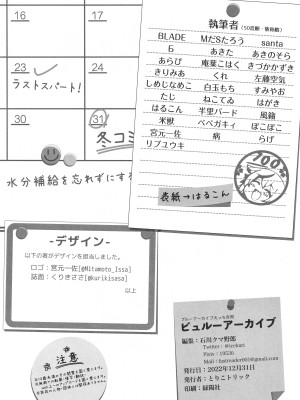 16
17
23
24
ラストスパート!
30
31
冬コミ
水分補給を忘れずにする
執筆者
BLADE
MだSたろう
santa
Б
あきた
あきのそら
あらび
庵葉こはく
きづかかずき
きりみあ
くれ
左藤空気
しめじなめこ
白玉もち
すみやお
たじ
ねこてゐ
はがき
はるこん
半里バード
風籟
米獣
ベベガキィ
ぽこぽこ
宮元一佐
病
らげ
リブユウキ
100
表紙→はるこん
-デザイン-
以下の者がデザインを担当しました。
ロゴ:宮元一佐[@Mitamoto_Issa]
誌面:くりきささ[@kurikisasa]
以上
注意
ビュルーアーカイブ
編集:石川クマ野郎
発行日:2022年12月31日
発行:とりこトリック
印刷:緑陽社